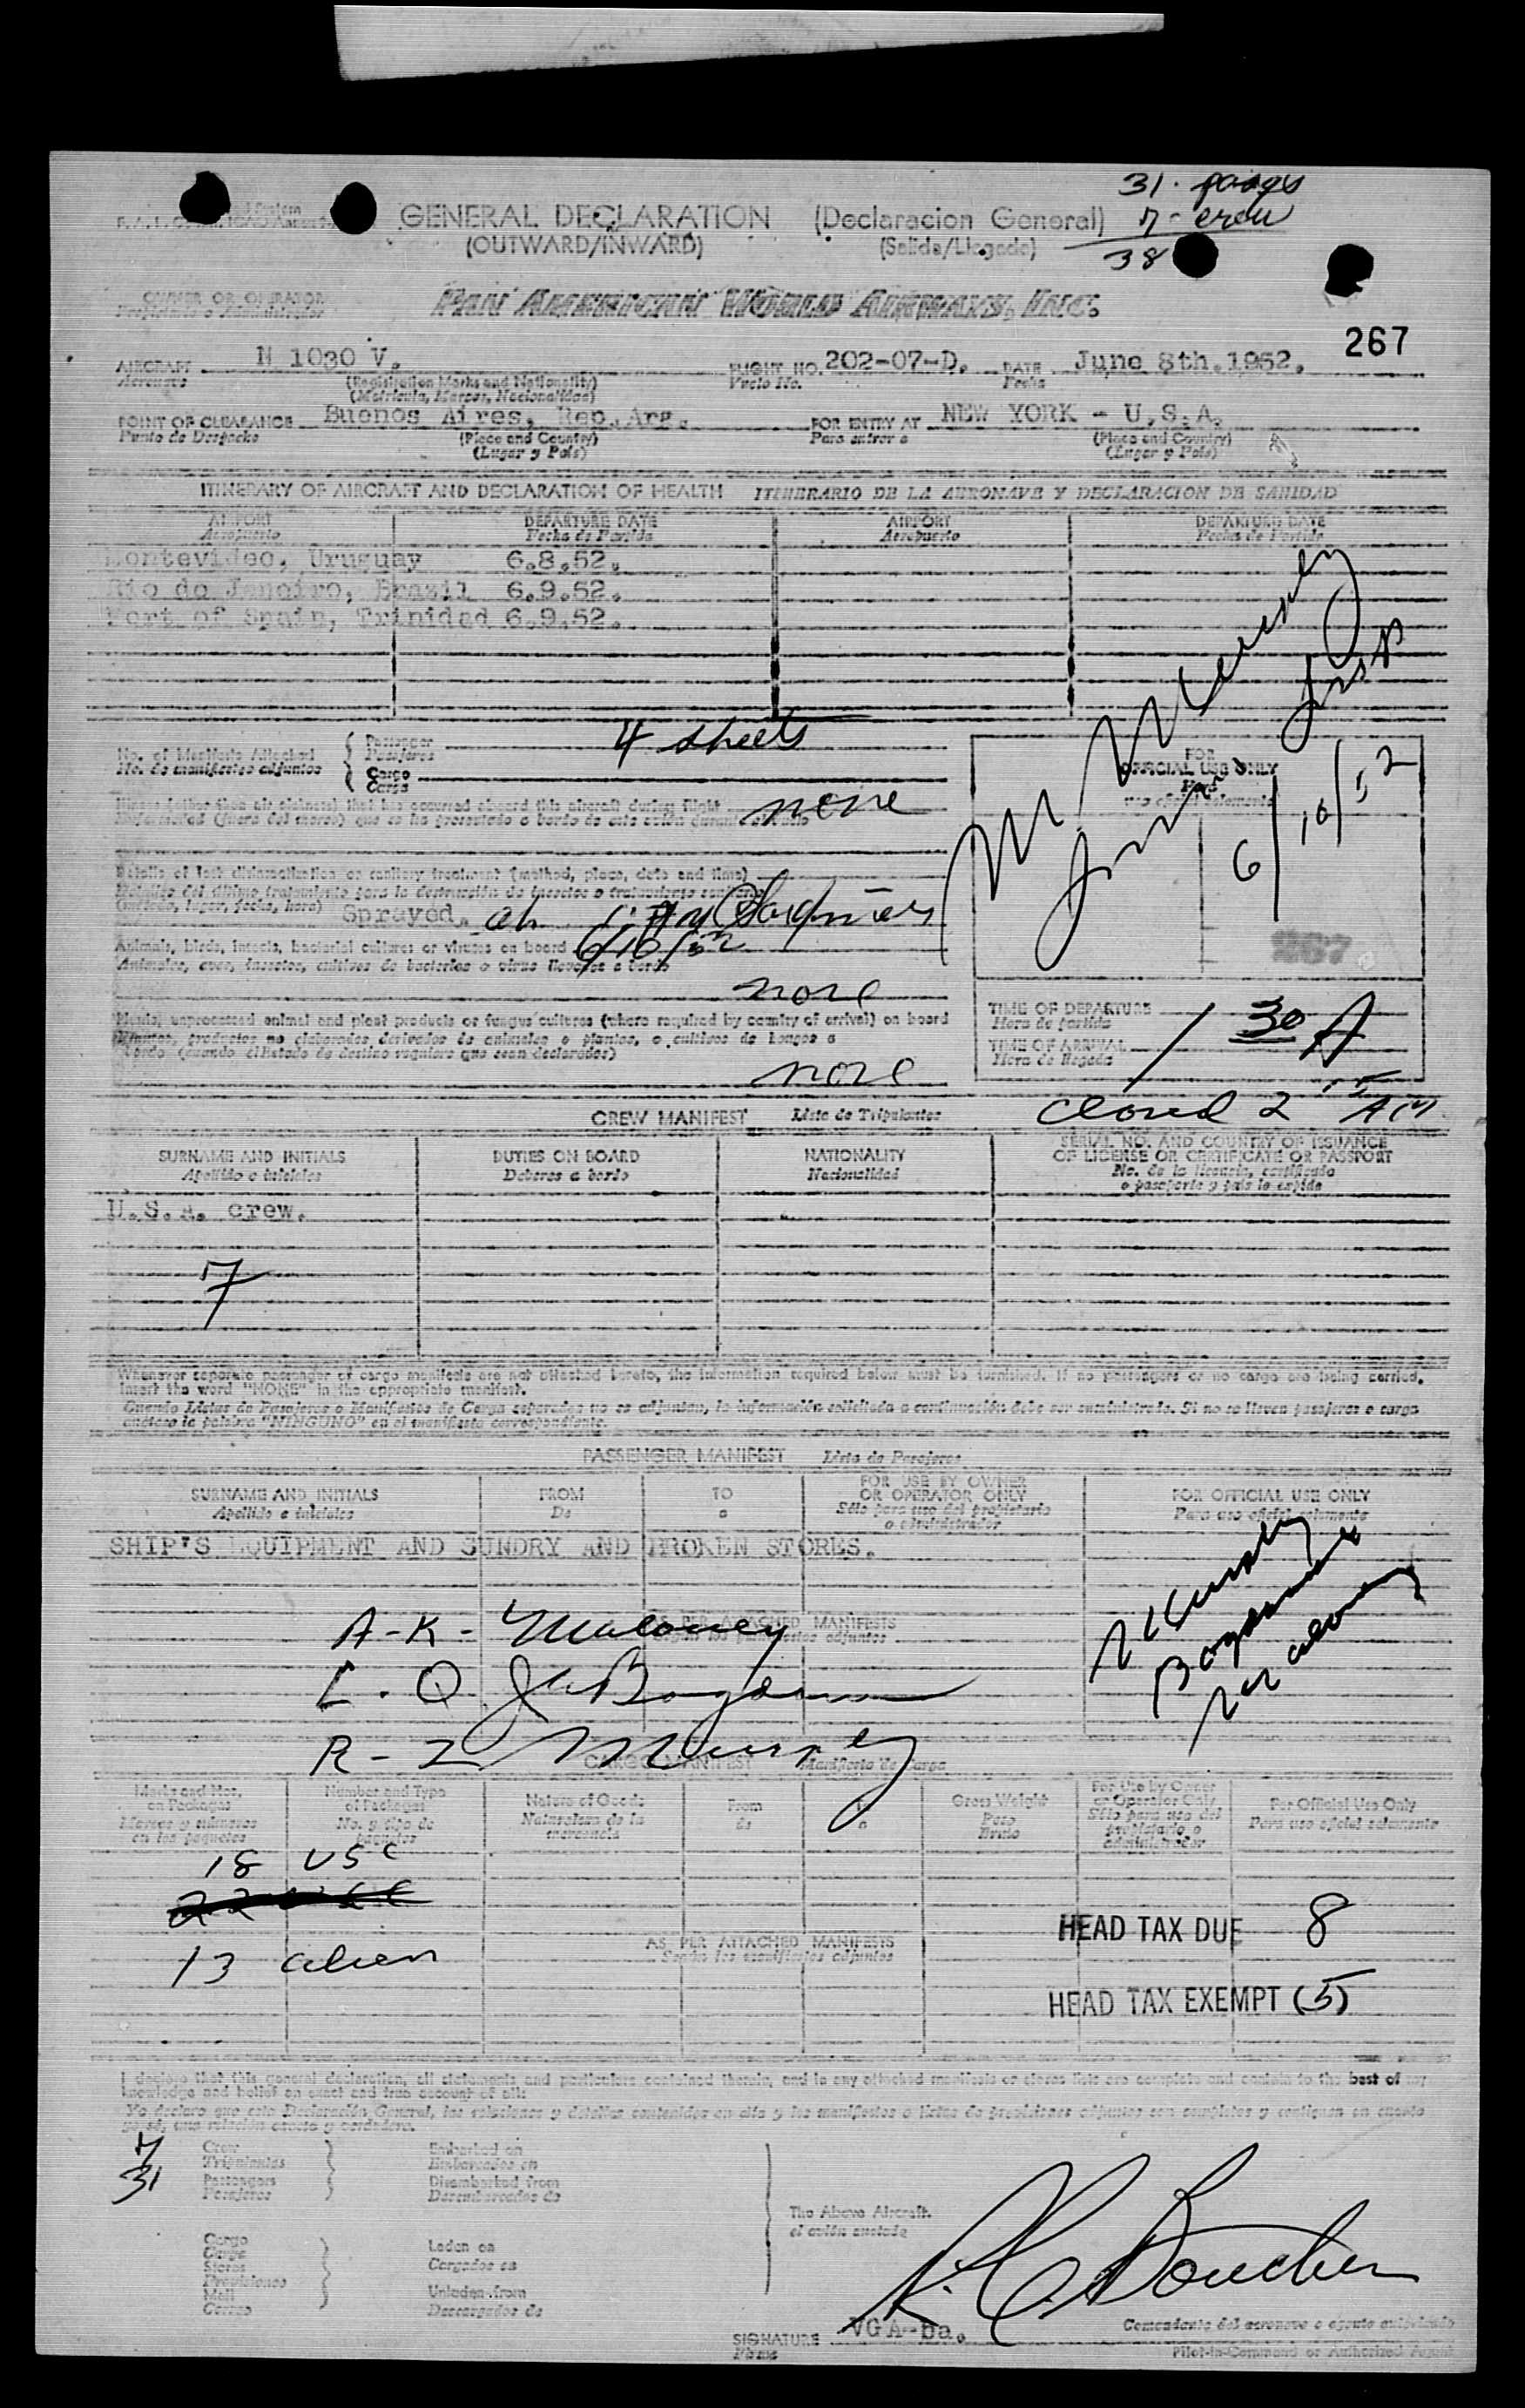 31. passgs
7- crew
38
GENERAL DECLARATION (Declaracion General)
(OUTWARD/INWARD) (Salida/Llegada)
OWNER OR OPERATOR
Propietario o Administrador
PAN AMERICAN WORLD AIRWAYS, INC.
267
AIRCRAFT N 1030 V. FLIGHT NO. 202-07-D. DATE June 8th.1952.
Aeronave (Registration Marks and Nationality) Vuelo No. Fecha
(Matricula, Marcas, Nacionalidad)
POINT OF CLEARANCE Buenos Aires, Rep.Arg. FOR ENTRY AT NEW YORK - U.S.A.
Punto de Despacho (Place and Country) Para entrar a (Place and Country)
(Lugar y País) (Lugar y País)
ITINERARY OF AIRCRAFT AND DECLARATION OF HEALTH ITINERARIO DE LA AERONAVE Y DECLARACION DE SANIDAD
AIRPORT DEPARTURE DATE AIRPORT DEPARTURE DATE
Aeropuerto Fecha de Partida Aeropuerto Fecha de Partida
Montevideo, Uruguay 6.8.52.
Rio de Janeiro, Brazil 6.9.52.
Port of Spain, Trinidad 6.9.52.
No. of Manifests Attached Passenger 4 sheets
No. de manifiestos adjuntos Pasajeros
Cargo
Carga
Illness (other than air sickness) that has occurred aboard this aircraft during flight none
FOR
OFFICIAL USE ONLY
Para
uso oficial solamente
6/10/52
267
Details of last disinsectization or sanitary treatment (method, place, date and time)
Detalles del último tratamiento para la destrucción de insectos o tratamiento sanitario
(método, lugar, fecha, hora) Sprayed.
6/10/52
Animals, birds, insects, bacterial cultures or viruses on board
Animales, aves, insectos, cultivos de bacterias o virus llevados a bordo
none
Plants, unprocessed animal and plant products or fungus cultures (where required by country of arrival) on board
Plantas, productos no elaborados derivados de animales o plantas, o cultivos de hongos a
bordo (cuando el Estado de destino requiera que sean declarados)
none
TIME OF DEPARTURE
Hora de partida
TIME OF ARRIVAL 1 30 A
Hora de llegada
closed 2 15 AM
CREW MANIFEST Lista de Tripulantes
SURNAME AND INITIALS DUTIES ON BOARD NATIONALITY SERIAL NO. AND COUNTRY OF ISSUANCE
OF LICENSE OR CERTIFICATE OR PASSPORT
Apellido e iniciales Deberes a bordo Nacionalidad No. de la licencia, certificado
o pasaporte y país lo expide
U.S.A. crew.
7
Whenever separate passenger or cargo manifests are not attached hereto, the information required below must be furnished. If no passengers or no cargo are being carried,
insert the word "NONE" in the appropriate manifest.
Cuando Listas de Pasajeros o Manifiestos de Carga separados no se adjuntan, la información solicitada a continuación debe ser suministrada. Si no se llevan pasajeros o carga
anótese la palabra "NINGUNO" en el manifiesto correspondiente.
PASSENGER MANIFEST Lista de Pasajeros
SURNAME AND INITIALS FROM TO FOR USE BY OWNER
OR OPERATOR ONLY FOR OFFICIAL USE ONLY
Apellido e iniciales De a Sólo para uso del propietario
o administrador Para uso oficial solamente
SHIP'S EQUIPMENT AND SUNDRY AND BROKEN STORES.
AS PER ATTACHED MANIFESTS
A-K- Maloney
R-Z Murphy
Murphy
Maloney
CARGO MANIFEST Manifiesto de Carga
Marks and Nos.
on Packages
Marcas y números
en los paquetes
Number and Type
of Packages
No. y tipo de
paquetes
Nature of Goods
Naturaleza de la
mercancía
From
de
To
a
Gross Weight
Peso
Bruto
For Use by Owner
or Operator Only
Sólo para uso del
propietario o
administrador
For Official Use Only
Para uso oficial solamente
18 USC
13 alien
AS PER ATTACHED MANIFESTS
Según los manifiestos adjuntos
HEAD TAX DUE 8
HEAD TAX EXEMPT (5)
I declare that this general declaration, all statements and particulars contained therein, and in any attached manifests or stores lists are complete and contain to the best of my
knowledge and belief an exact and true account of all:
7 Crew Embarked on
Tripulantes Embarcados en
31 Passengers Disembarked from
Pasajeros Desembarcados de
The Above Aircraft.
el avión anotado
Cargo
Carga
Stores
Provisiones
Mail
Correo
Laden on
Cargados en
Unladen from
Descargados de
SIGNATURE VGA-ba.
Firma
Comandante del aeronave o agente autorizado
Pilot-in-Command or Authorized Agent